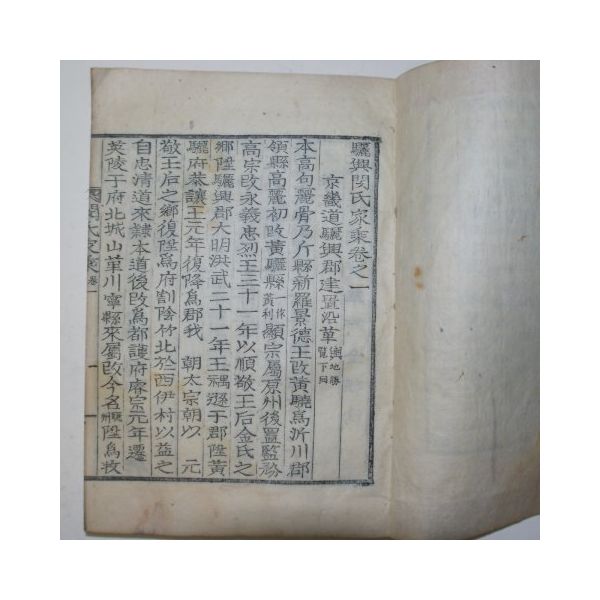 驪興閔氏家乘卷之一
京畿道驪興郡建置沿革輿地勝覽下同
本高句麗骨乃斤縣新羅景德王改黃驍爲沂川郡
領縣高麗初改黃驪縣一作黃利顯宗屬原州後置監務
高宗改永義忠烈王三十一年以順敬王后金氏之
鄉陞驪興郡大明洪武二十一年王禑遜于郡陞黃
驪府恭讓王元年復降爲郡我 朝太宗朝以 元
敬王后之鄉復陞爲府割陰竹北於西伊村以益之
自忠淸道來隸本道後改爲都護府睿宗元年遷
英陵于府北城山革川寧縣來屬改今名驪州陞爲牧
閔氏家乘 卷一